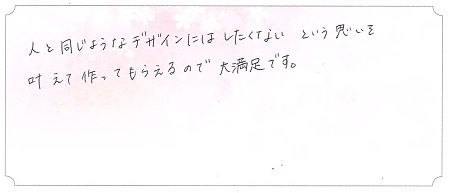 人と同じようなデザインにはしたくない という思いを
叶えて作ってもらえるので大満足です。